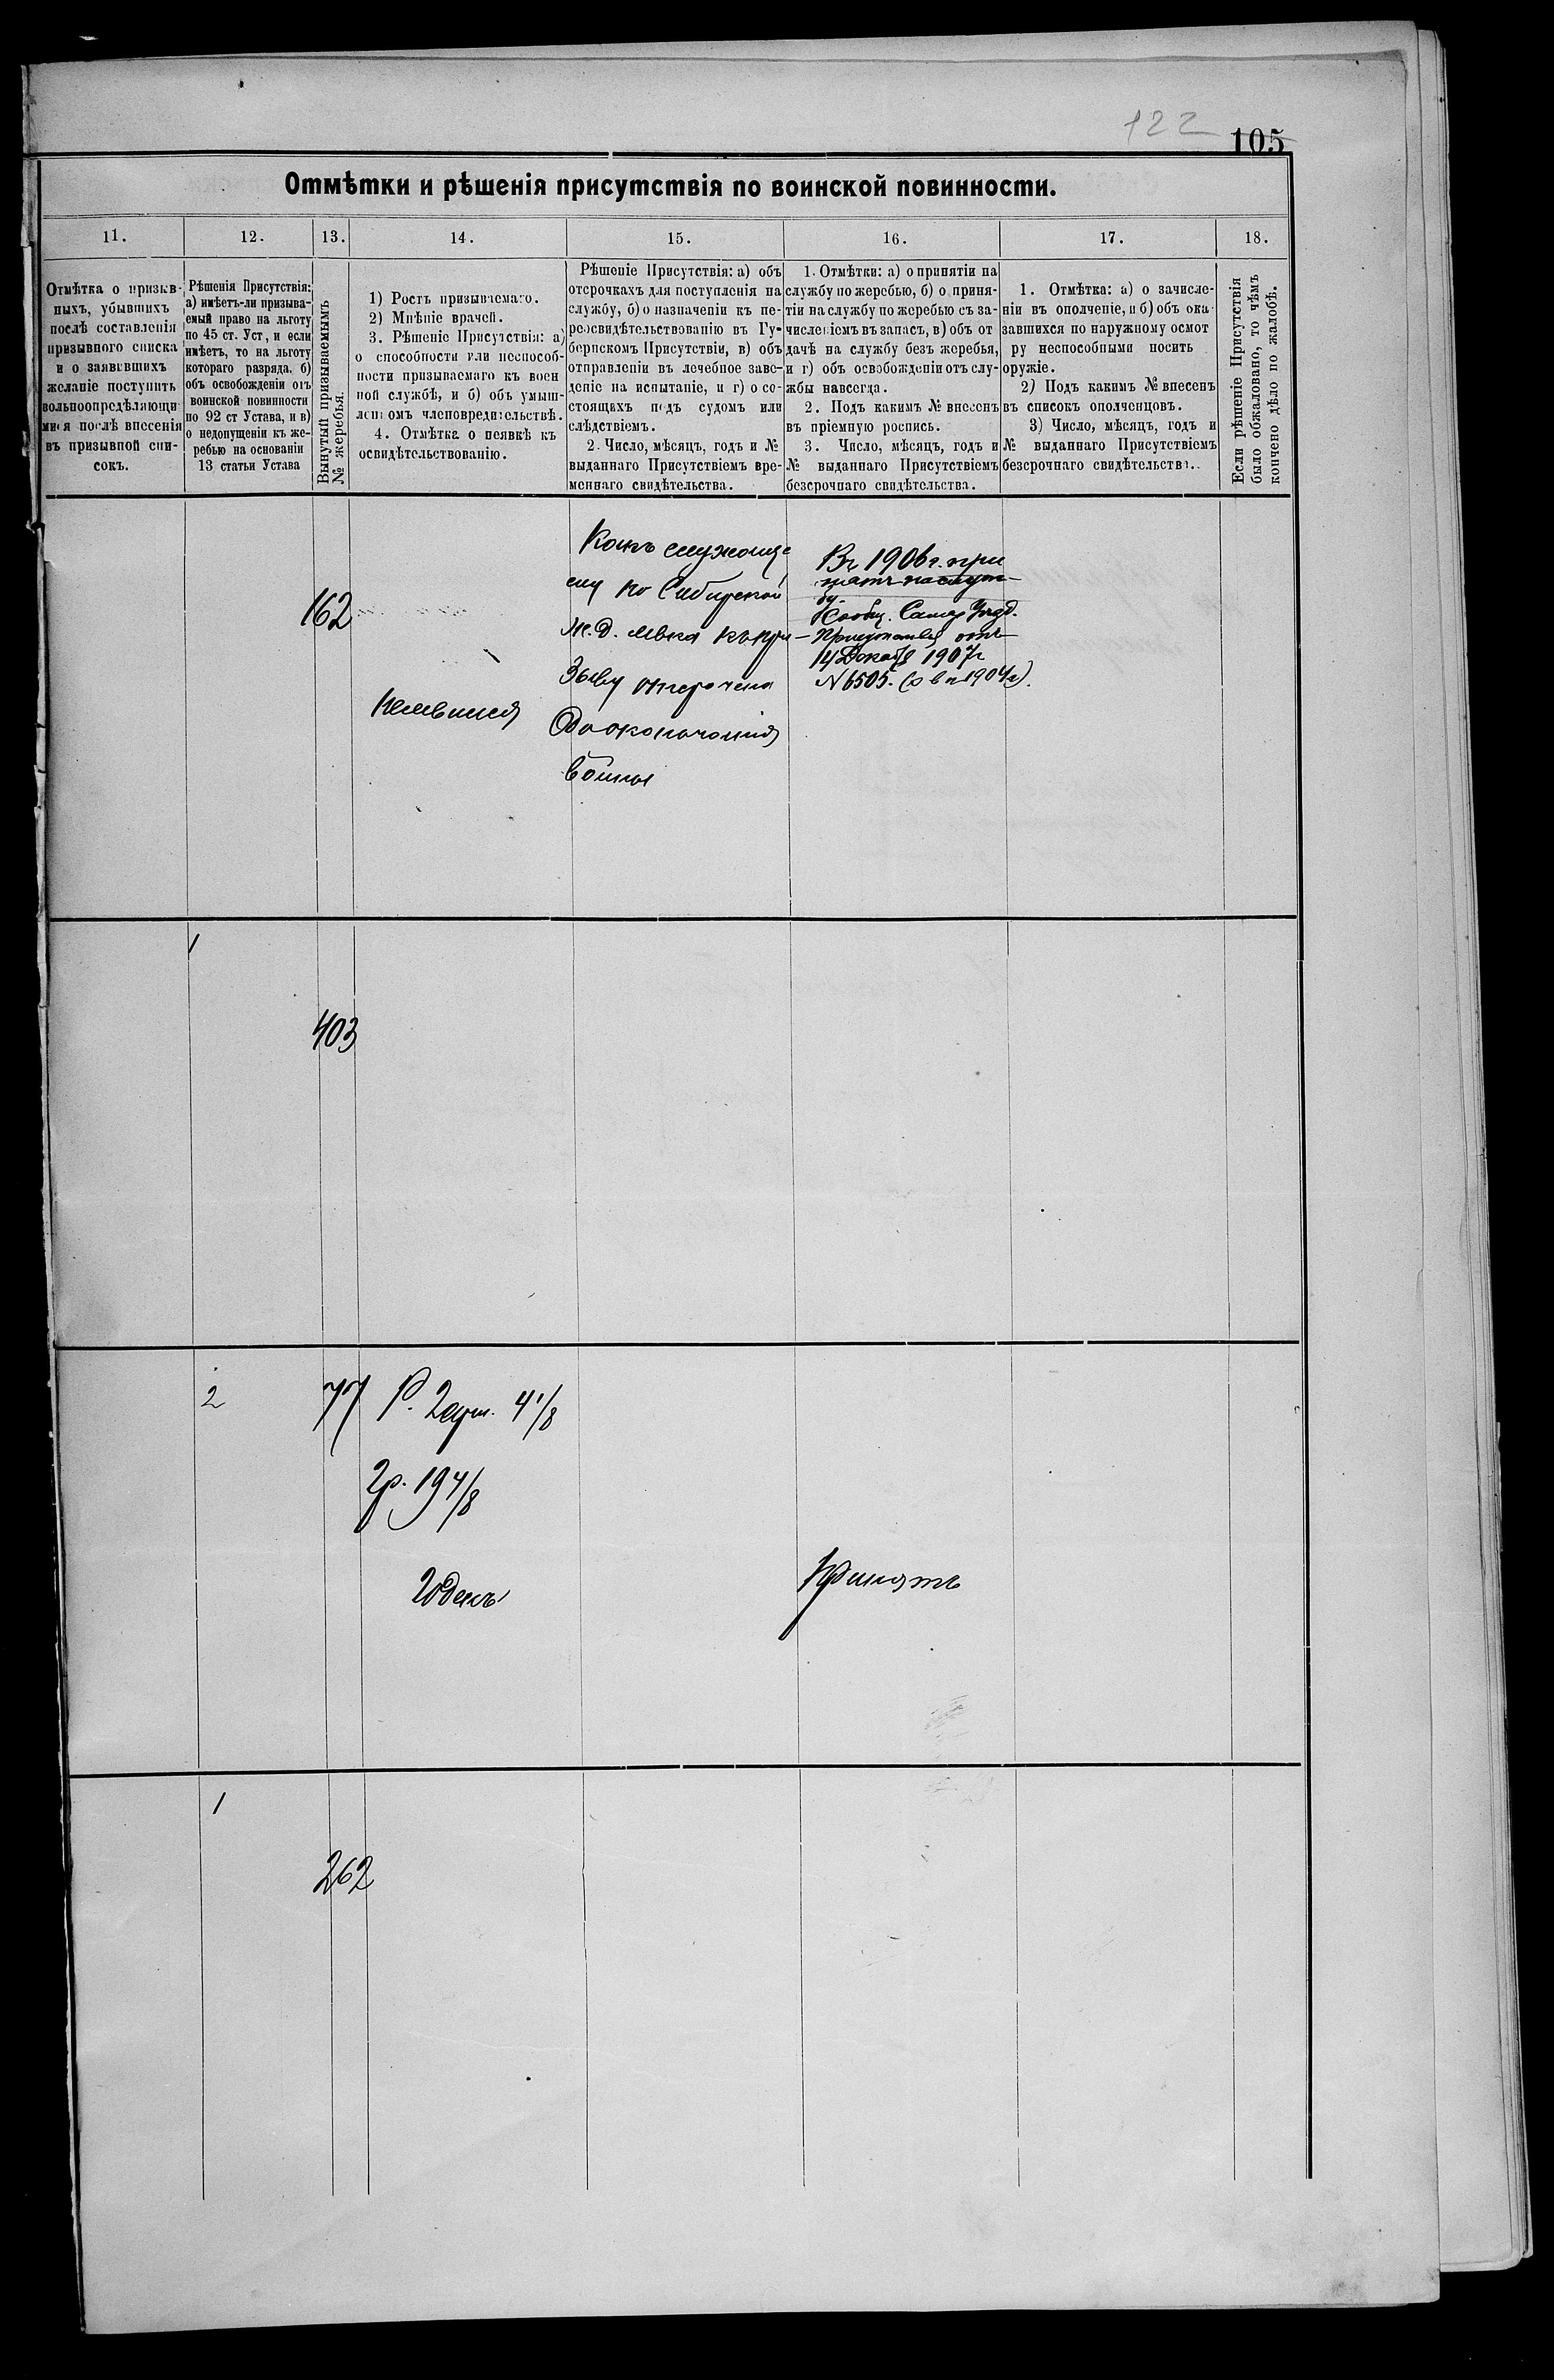 122
105
Отмѣтки и рѣшенія присутствія по воинской повинности.
11.
12.
13.
14.
15.
16.
17.
18.
Отмѣтка о призыв-
ныхъ, убывшихъ
послѣ составленія
призывного списка
и о заявившихъ
желаніе поступить
вольноопредѣляющи
мися послѣ внесенія
въ призывной спи-
сокъ.
Рѣшенія Присутствія:
а) имѣетъ-ли призыва-
емый право на льготу
по 45 ст. Уст, и если
имѣетъ, то на льготу
котораго разряда, б)
объ освобожденіи отъ
воинской повинности
по 92 ст Устава, и в)
о недопущеніи къ же-
ребью на основаніи
13 статьи Устава
Вынутый призываемымъ
№ жеребья.
1) Ростъ призываемаго.
2) Мнѣніе врачей.
3. Рѣшеніе Присутствія: а)
о способности или неспособ-
ности призываемаго къ воен
ной службѣ, и б) объ умыш-
ленномъ членовредительствѣ.
4. Отмѣтка о неявкѣ къ
освидѣтельствованію.
Рѣшеніе Присутствія: а) объ
отсрочкахъ для поступленія на
службу, б) о назначеніи къ пе-
реосвидѣтельствованію въ Гу-
бернскомъ Присутствіи, в) объ
отправленіи въ лечебное заве-
деніе на испытаніе, и г) о со-
стоящихъ подъ судомъ или
слѣдствіемъ.
2. Число, мѣсяцъ, годъ и №
выданнаго Присутствіемъ вре-
меннаго свидѣтельства.
1. Отмѣтки: а) о принятіи на
службу по жеребью, б) о приня-
тіи на службу по жеребью съ за-
численіемъ въ запасъ, в) объ от
дачѣ на службу безъ жеребья,
и г) объ освобожденіи отъ слу-
жбы навсегда.
2. Подъ какимъ № внесенъ
въ пріемную роспись.
3. Число, мѣсяцъ, годъ и
№ выданнаго Присутствіемъ
безсрочнаго свидѣтельства.
1. Отмѣтка: а) о зачисле-
ніи въ ополченіе, и б) объ ока
завшихся по наружному осмот
ру неспособными носить
оружіе.
2) Подъ какимъ № внесенъ
въ списокъ ополченцовъ.
3) Число, мѣсяцъ, годъ и
№ выданнаго Присутствіемъ
безсрочнаго свидѣтельства..
Если рѣшеніе Присутствія
было обжаловано, то чѣмъ
кончено дѣло по жалобѣ.
162
неявился
Какъ служаще
му по Сибирской
Ж.д. явка къ при-
зыву отсрочена
до окончанія
войны
Въ 1906 г. при
нятъ на служ-
бу
Сообщ. Самар Уѣзд.
Присутствія отъ
14 Декабр 1907 г
№ 6505.
1
403
2
77
Р. 2 арш. 4 1/8
гр. 19 4/8
Годенъ
Принятъ
1
262